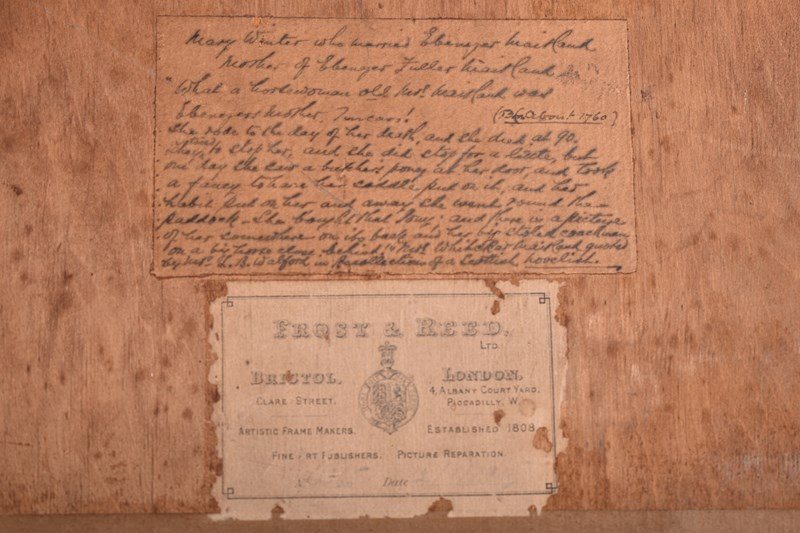 Mary Winter who married Ebenezer Maitland
Mother of Ebenezer Fuller Maitland
"What a horsewoman old Mrs. Maitland was
Ebenezers Mother, I mean!
(Ph. about 1760)
She rode to the day of her death, and she died at 90.
They tried to stop her, and she did stop for a little, but
one day she saw a butchers pony at her door, and took
a fancy to have her saddle put on it, and her
habit put on her and away she went round the
paddock. She bought that Pony; and there is a picture
of her somewhere on its back and her big coachman
on a big horse close behind" Mrs. Whitaker Maitland quoted
by Mrs. L. B. Walford in Recollections of a Scottish novelist.
FROST & REED,
LTD.
BRISTOL. LONDON.
CLARE STREET. 4, ALBANY COURT YARD,
PICCADILLY, W.
ARTISTIC FRAME MAKERS. ESTABLISHED 1808
FINE ART PUBLISHERS. PICTURE REPARATION.
Date